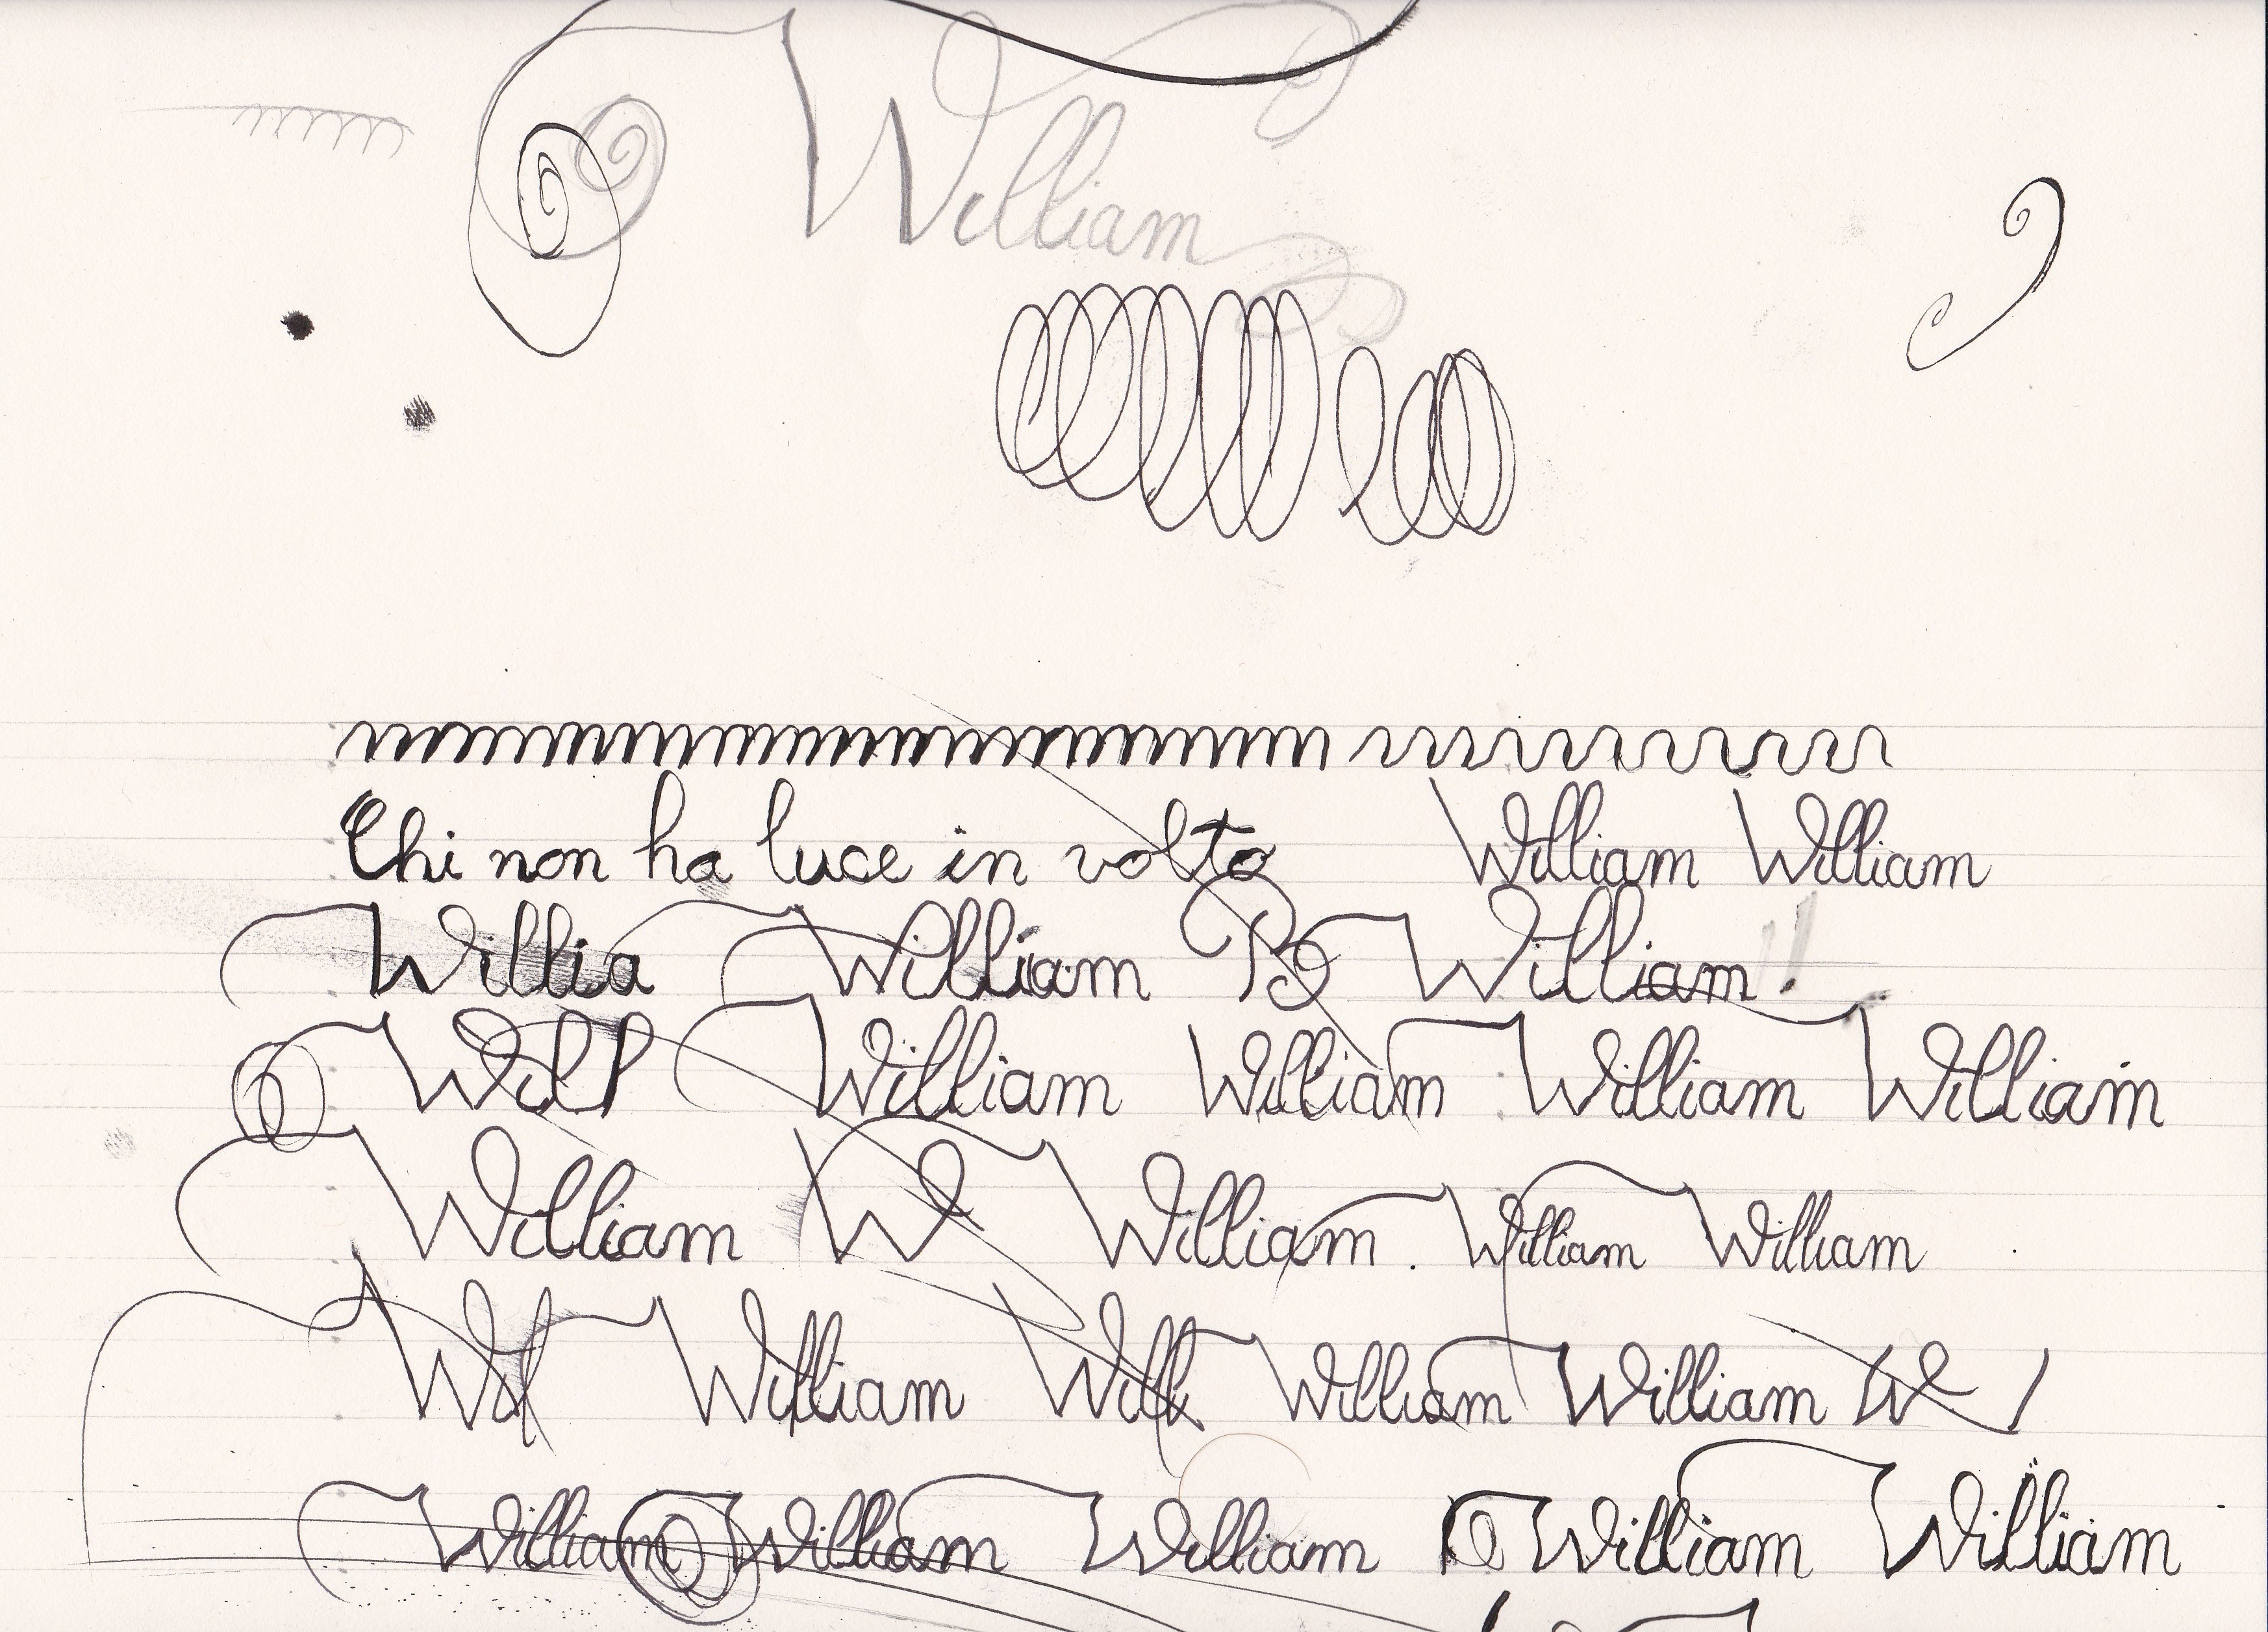 William
Chi non ha luce in volto William William
Willia William B William!
Will William William William William
William W William. William William
Wil William Willi William William W
William William William William William